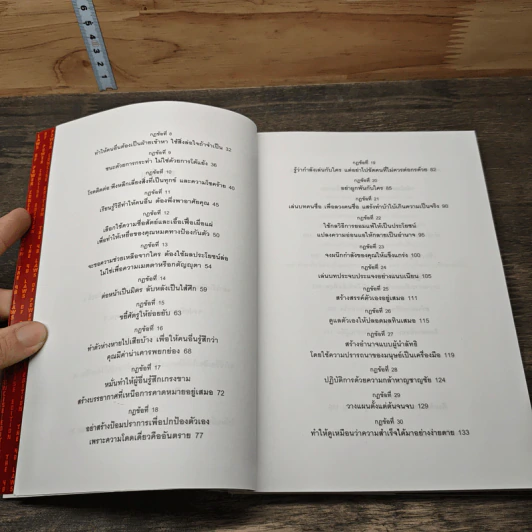 กฎข้อที่ 8
ทำให้คนอื่นต้องเป็นฝ่ายเข้าหา ใช้สิ่งล่อใจถ้าจำเป็น 32
กฎข้อที่ 9
ชนะด้วยการกระทำ ไม่ใช่ด้วยการโต้แย้ง 36
กฎข้อที่ 10
โรคติดต่อ:พึงหลีกเลี่ยงสิ่งที่เป็นทุกข์ และความโชคร้าย 40
กฎข้อที่ 11
เรียนรู้วิธีทำให้คนอื่น ต้องพึ่งพาอาศัยคุณ 45
กฎข้อที่ 12
เลือกใช้ความซื่อสัตย์และเอื้อเฟื้อเผื่อแผ่
เพื่อทำให้เหยื่อของคุณหมดทางป้องกันตัว 50
กฎข้อที่ 13
จะขอความช่วยเหลือจากใคร ต้องใช้ผลประโยชน์ล่อ
ไม่ใช่เพื่อความเมตตาหรือกตัญญุตา 54
กฎข้อที่ 14
ต่อหน้าเป็นมิตร ลับหลังเป็นไส้ศึก 59
กฎข้อที่ 15
ขยี้ศัตรูให้ย่อยยับ 63
กฎข้อที่ 16
ทำตัวห่างหายไปเสียบ้าง เพื่อให้คนอื่นรู้สึกว่า
คุณมีค่าน่าเคารพยกย่อง 68
กฎข้อที่ 17
หมั่นทำให้ผู้อื่นรู้สึกเกรงขาม
สร้างบรรยากาศที่เหนือการคาดหมายอยู่เสมอ 72
กฎข้อที่ 18
อย่าสร้างป้อมปราการเพื่อปกป้องตัวเอง
เพราะความโดดเดี่ยวคืออันตราย 77
กฎข้อที่ 19
รู้ว่ากำลังเล่นกับใคร แต่อย่าไปขัดคนที่ไม่ควรต่อกรด้วย 82
กฎข้อที่ 20
อย่าผูกพันกับใคร 86
กฎข้อที่ 21
เล่นบทคนซื่อ เพื่อลวงคนซื่อ แสร้งทำบ้าใบ้เกินความเป็นจริง 90
กฎข้อที่ 22
ใช้กลวิธีการยอมแพ้ให้เป็นประโยชน์
แปลงความอ่อนแอให้กลายเป็นอำนาจ 95
กฎข้อที่ 23
จงผนึกกำลังของคุณให้แข็งแกร่ง 100
กฎข้อที่ 24
เล่นบทประจบประแจงอย่างแนบเนียน 105
กฎข้อที่ 25
สร้างสรรค์ตัวเองอยู่เสมอ 111
กฎข้อที่ 26
ดูแลตัวเองให้ปลอดมลทินเสมอ 115
กฎข้อที่ 27
สร้างอำนาจแบบผู้นำลัทธิ
โดยใช้ความปรารถนาของมนุษย์เป็นเครื่องมือ 119
กฎข้อที่ 28
ปฏิบัติการด้วยความกล้าหาญชาญชัย 124
กฎข้อที่ 29
วางแผนตั้งแต่ต้นจนจบ 129
กฎข้อที่ 30
ทำให้ดูเหมือนว่าความสำเร็จได้มาอย่างง่ายดาย 133